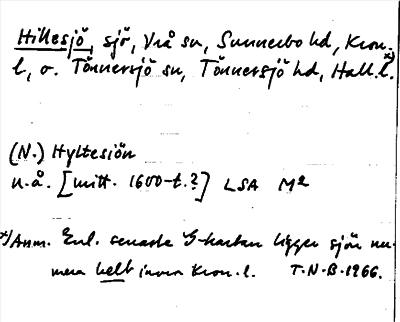 Hillesjö, sjö, Vrå sn, Sunnerbo hd, Kron.
l, o. Tönnersjö sn, Tönnersjö hd, Hall.l. x)
(N.) Hyltesiön
u.å. [mitt. 1600-t.?] LSA M2
x) Anm. Enl. senaste G-kartan ligger sjön nu-
mera helt inom Kron.l. T.N.B. 1966.